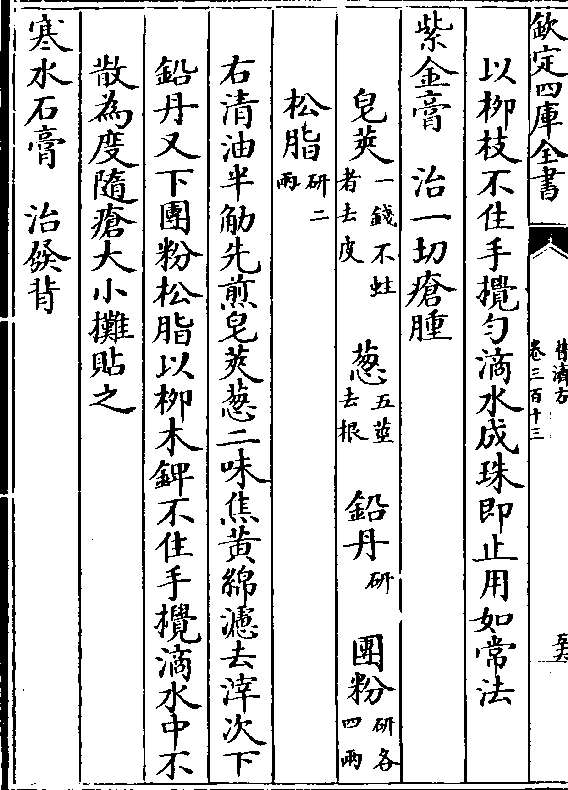 欽定四庫全書
普濟方
卷三百十三
以柳枝不住手攪勻滴水成珠即止用如常法
紫金膏 治一切瘡腫
皂莢一錢不蛀者去皮 葱五莖去根 鉛丹研 團粉研各四兩
松脂研二兩
右清油半觔先煎皂莢葱二味焦黃綿濾去滓次下
鉛丹又下團粉松脂以柳木錍不住手攪滴水中不
散為度隨瘡大小攤貼之
寒水石膏 治發背